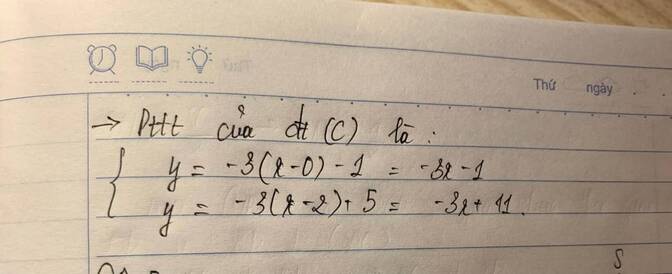 Thứ ngày . .
→ Pttt của đt (C) là :
y = -3(x-0) - 1 = -3x - 1
y = -3(x-2) + 5 = -3x + 11.